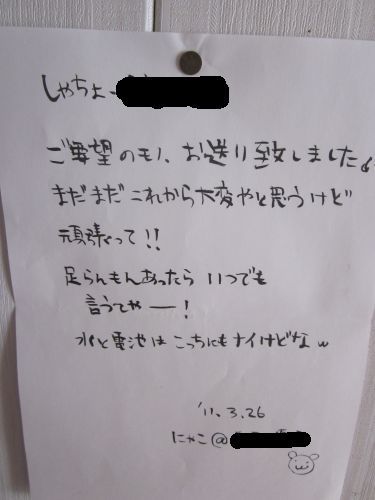 しゃちょー
ご要望のモノ、お送り致しました。
まだまだこれから大変やと思うけど
頑張って!!
足らんもんあったら いつでも
言うてやー!
水と電池は こっちにもナイけどなw
'11.3.26
にゃこ@